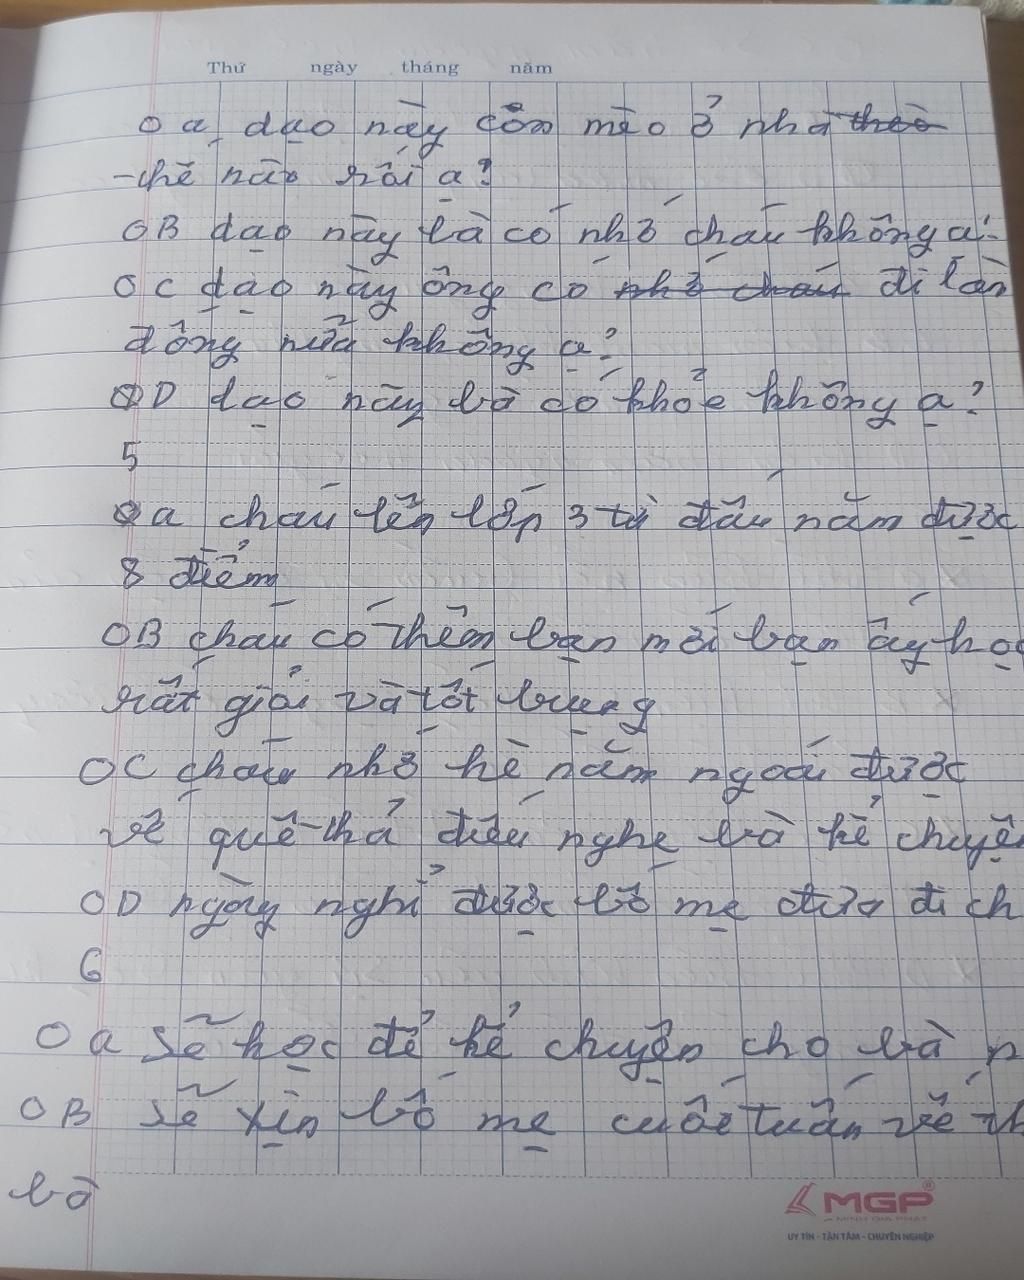 Thứ ngày tháng năm
O a, dạo này con mèo ở nhà theo
thế nào rồi ạ?
OB dạo này bà có nhớ cháu không ạ?
OC dạo này ông có nhớ cháu đi làm
đồng nữa không ạ?
OD dạo này bà có khỏe không ạ?
5
O a cháu lên lớp 3 từ đầu năm được
8 điểm
OB cháu có thêm bạn mới bạn ấy họ
rất giỏi và tốt bụng
OC cháu nhớ hè năm ngoái được
về quê thả diều nghe bà kể chuyện
OD ngày nghỉ được bố mẹ đưa đi ch
6
O a sẽ học để kể chuyện cho bà n
OB sẽ xin bố mẹ cuối tuần về th
bà
MGP
MINH GIA PHÁT
UY TÍN - TẬN TÂM - CHUYÊN NGHIỆP